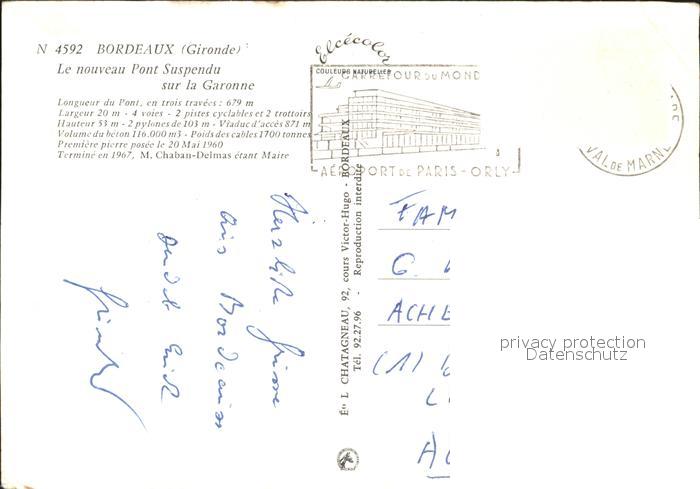 N 4592 BORDEAUX (Gironde)
Le nouveau Pont Suspendu
sur la Garonne
Longueur du Pont, en trois travées : 679 m
Largeur 20 m - 4 voies - 2 pistes cyclables et 2 trottoirs
Hauteur 53 m - 2 pylones de 103 m - Viaduc d'accès 871 m
Volume du béton 116.000 m3 - Poids des cables 1700 tonnes
Première pierre posée le 20 Mai 1960
Terminé en 1967, M. Chaban-Delmas étant Maire
Elcécolor
COULEURS NATURELLES
CARREFOUR DU MOND
AÉROPORT DE PARIS - ORLY
VAL DE MARNE
Éd. L CHATAGNEAU, 92, cours Victor-Hugo - BORDEAUX
Tél. 92.27.96 - Reproduction interdite
Herzliche Grüsse
aus Bordeaux
FAM
G.
ACHE
(1)
privacy protection
Datenschutz